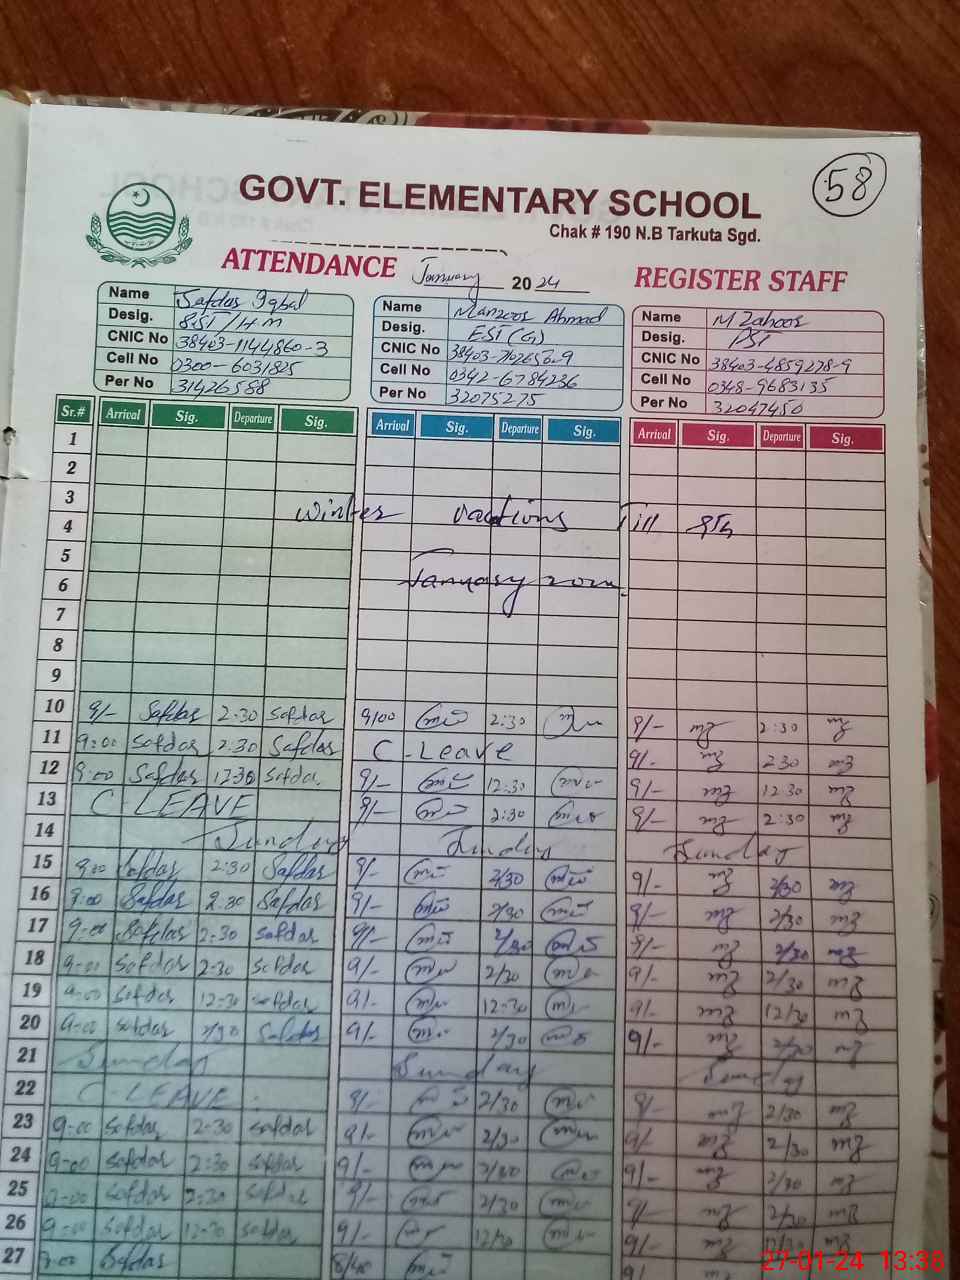 58
GOVT. ELEMENTARY SCHOOL
Chak # 190 N.B Tarkuta Sgd.
ATTENDANCE January 2024 REGISTER STAFF
Name Safdar Iqbal Name Manzoor Ahmad Name M Zahoor
Desig. SST/H.M Desig. EST (G) Desig. PST
CNIC No 38403-1144860-3 CNIC No CNIC No 38403-4859278-9
Cell No 0300-6031825 Cell No 0342-6784236 Cell No 0348-9683135
Per No 31426588 Per No 32075275 Per No 32047450
Sr.# Arrival Sig. Departure Sig. Arrival Sig. Departure Sig. Arrival Sig. Departure Sig.
1
2
3
winter vactions Till 9Th
4
5
January
6
7
8
9
10 9/- Safdar 2:30 Safdar 9/00 2:30 9/- 2:30
11 9:00 Safdar 2:30 Safdar C-Leave 9/- 2 30
12 9:00 Safdar 12:30 Safdar 9/- 12:30 9/- 12 30
13 C-LEAVE 9/- 2:30 9/- 2:30
14 Sunday Sunday Sunday
15 9:00 Safdar 2:30 Safdar 9/- 2/30 9/- 2/30
16 9:00 Safdar 2:30 Safdar 9/- 2/30 9/- 2/30
17 9:00 Safdar 2:30 Safdar 9/- 2/30 9/- 2/30
18 9-00 Safdar 2-30 Safdar 9/- 2/30 9/- 2/30
19 9-00 Safdar 12-30 Safdar 9/- 12-30 9/- 12/30
20 9-00 Safdar 2/30 Safdar 9/- 2/30 9/- 2/30
21 Sunday Sunday Sunday
22 C-LEAVE 9/- 2/30 9/- 2/30
23 9-00 Safdar 2-30 Safdar 9/- 2/30 9/- 2/30
24 9-00 Safdar 2:30 Safdar 9/- 2/30 9/- 2/30
25 9-00 Safdar 2:30 Safdar 9/- 2/30 9/- 2/30
26 9-00 Safdar 12-30 Safdar 9/- 12/30 9/- 12/30
27 Safdar 8/40
27-01-24 13:38